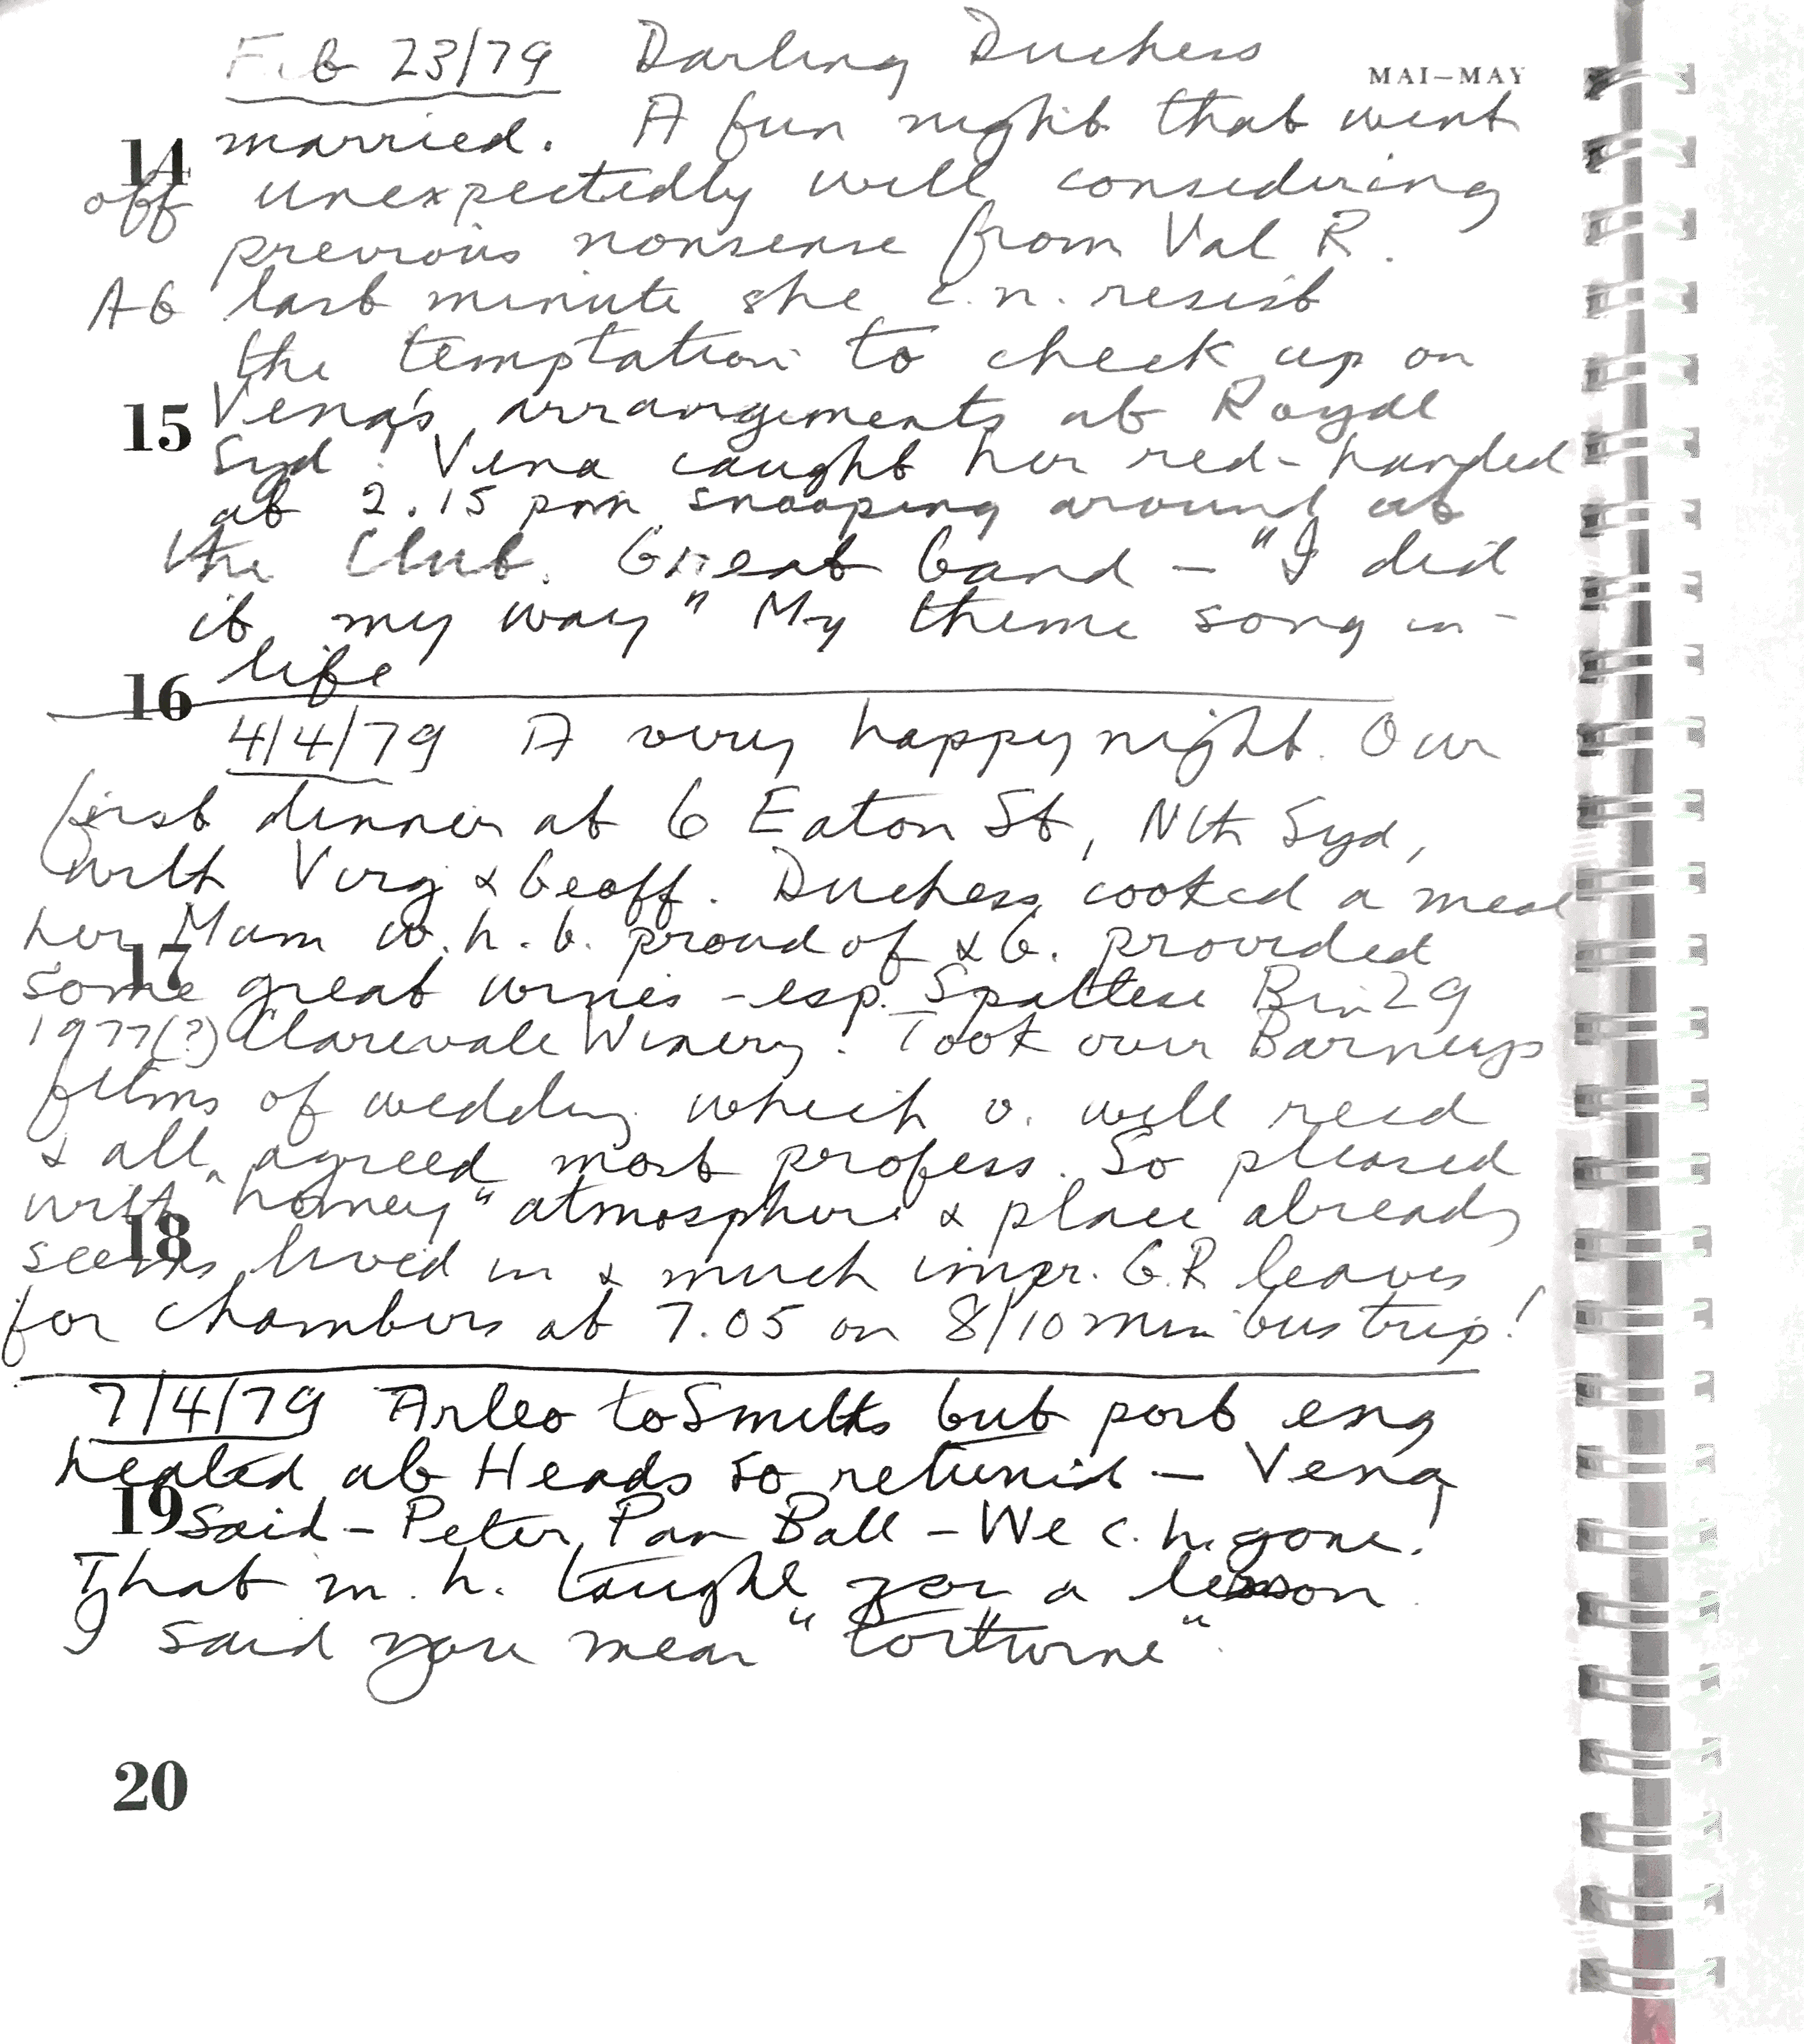 Feb 23/79 Darling Duchess
MAI–MAY
14 married. A fun night that went
off unexpectedly well considering
previous nonsense from Val R.
At last minute she c.n. resist
the temptation to check up on
15 Vena's arrangements at Royal
Syd! Vena caught her red-handed
at 2.15 pm snooping around at
the Club. Great band – "I did
it my way" My theme song in
life
16
4/4/79 A very happy night. Our
first dinner at 6 Eaton St, Nth Syd,
with Virg & Geoff. Duchess cooked a meal
her Mum w.h.b. proud of & G. provided
17
some great wines – esp. Spatlese Bin 29
1977(?) Clarevale Winery! Took over Barneys
films of wedding which v. well recd
& all agreed most profess. So pleased
with "homey" atmosphere & place already
18
seems lived in & much impr. G.R leaves
for chambers at 7.05 on 8/10 min bus trip!
7/4/79 Arleo to Smiths but port eng
heated at Heads so returned – Vena
19 said – Peter Pan Ball – We c.h. gone!
That m.h. taught you a lesson
I said you mean "torture".
20